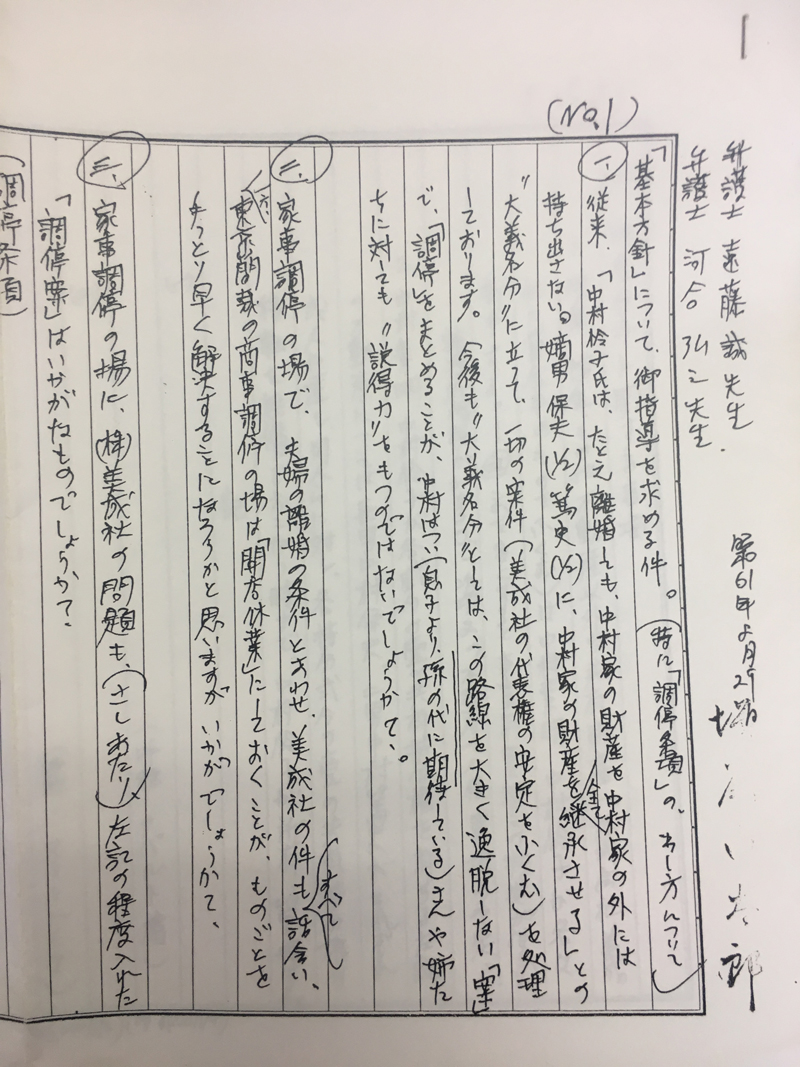 1
(No.1)
弁護士 遠藤誠先生.
弁護士 河合弘之先生.
61年 月29
郎
「基本方針」について、御指導を求める件。(特に「調停条項」の、出し方について)
一、従来、「中村 子氏は、たとえ離婚しても、中村家の財産を中村家の外には
持ち出さないで、嫡男 保夫(1/2) 篤史(1/2)に、中村家の財産を全て継承させる」との
"大義名分"に立って、一切の案件(美成社の代表権の安定をふくむ)を処理
しております。今後も"大義名分"としては、この路線を大きく逸脱しない「案」
で、「調停」をまとめることが、中村はつい(息子より、孫の代に期待している)さんや姉た
ちに対しても"説得力"をもつのではないでしょうか?。
二、家事調停の場で、夫婦の離婚の条件とあわせ、美成社の件もすべて話合い、
一方、東京簡裁の商事調停の場は「開店休業」にしておくことが、ものごとを
すっとり早く解決することになろうかと思いますがいかがでしょうか?、
三、家事調停の場に、(株)美成社の問題も、(さしあたり)左記の程度入れた
「調停案」はいかがなものでしょうか?、
(調停条項)